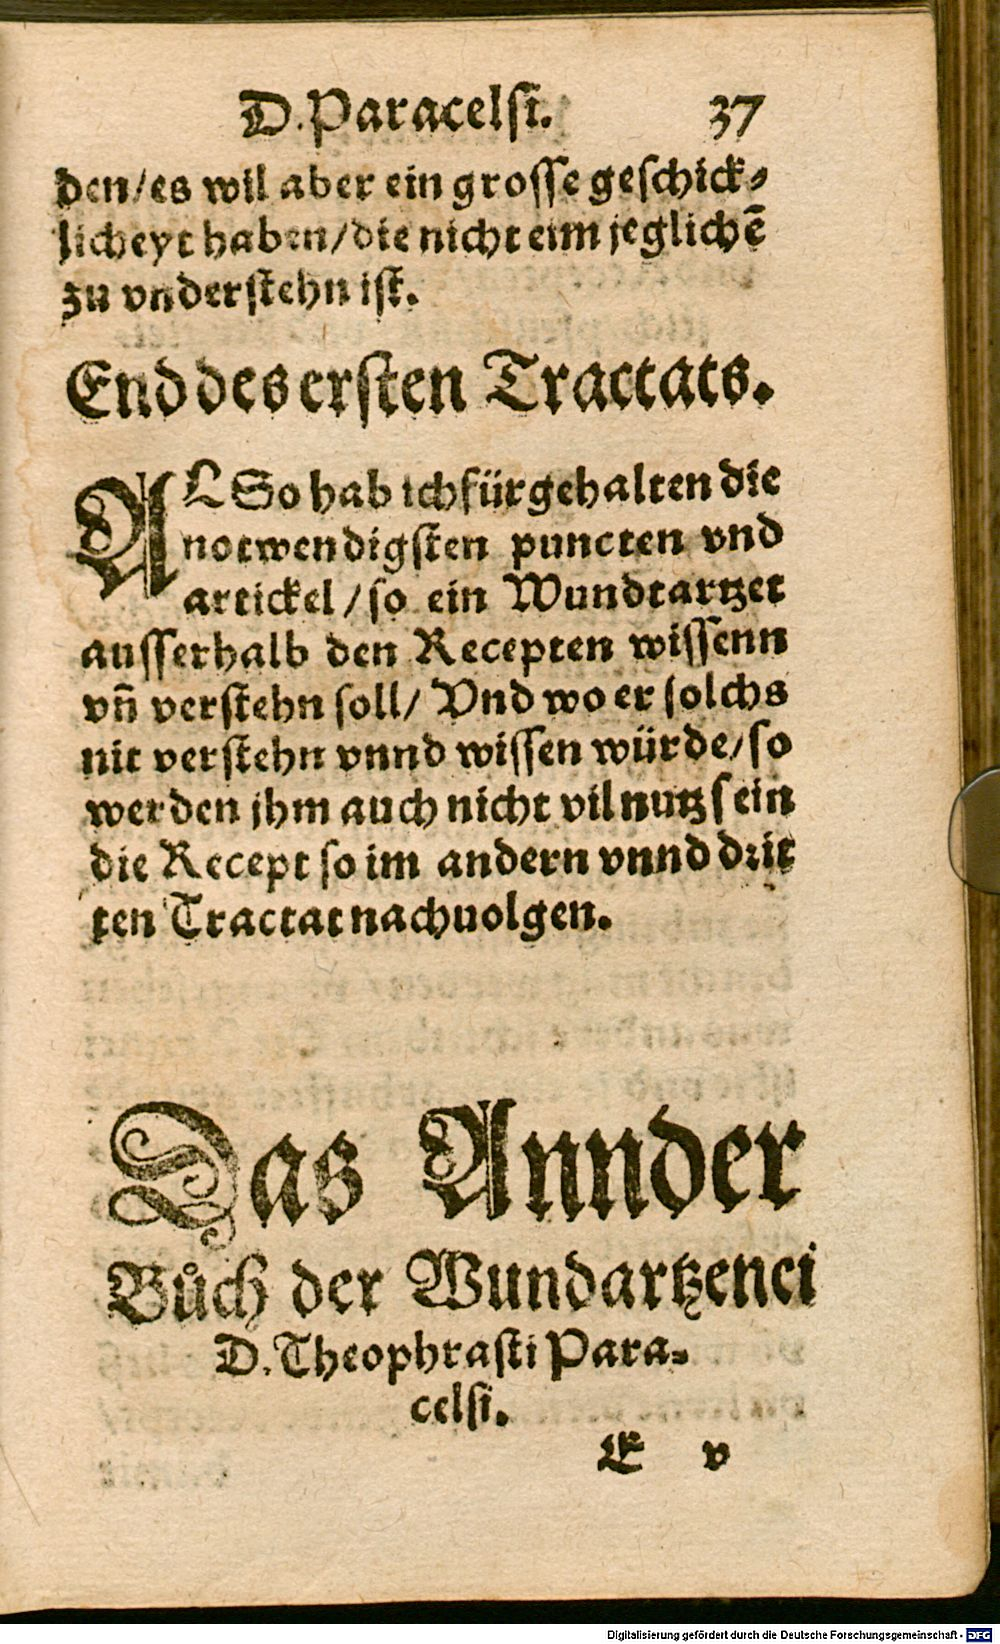 D. Paracelsi. 37
den/es wil aber ein grosse geschick⸗
licheyt haben/die nicht eim jeglichē
zu vnderstehn ist.
End des ersten Tractats.
ALSo hab ich fürgehalten die
notwendigsten puncten vnd
artickel/so ein Wundtartzet
ausserhalb den Recepten wissenn
vn̄ verstehn soll/ Vnd wo er solchs
nit verstehn vnnd wissen würde/so
werden jhm auch nicht vil nutz sein
die Recept so im andern vnnd drit
ten Tractat nachuolgen.
Das Annder
Bůch der Wundartzenei
D. Theophrasti Para⸗
celsi.
E v
Digitalisierung gefördert durch die Deutsche Forschungsgemeinschaft - DFG